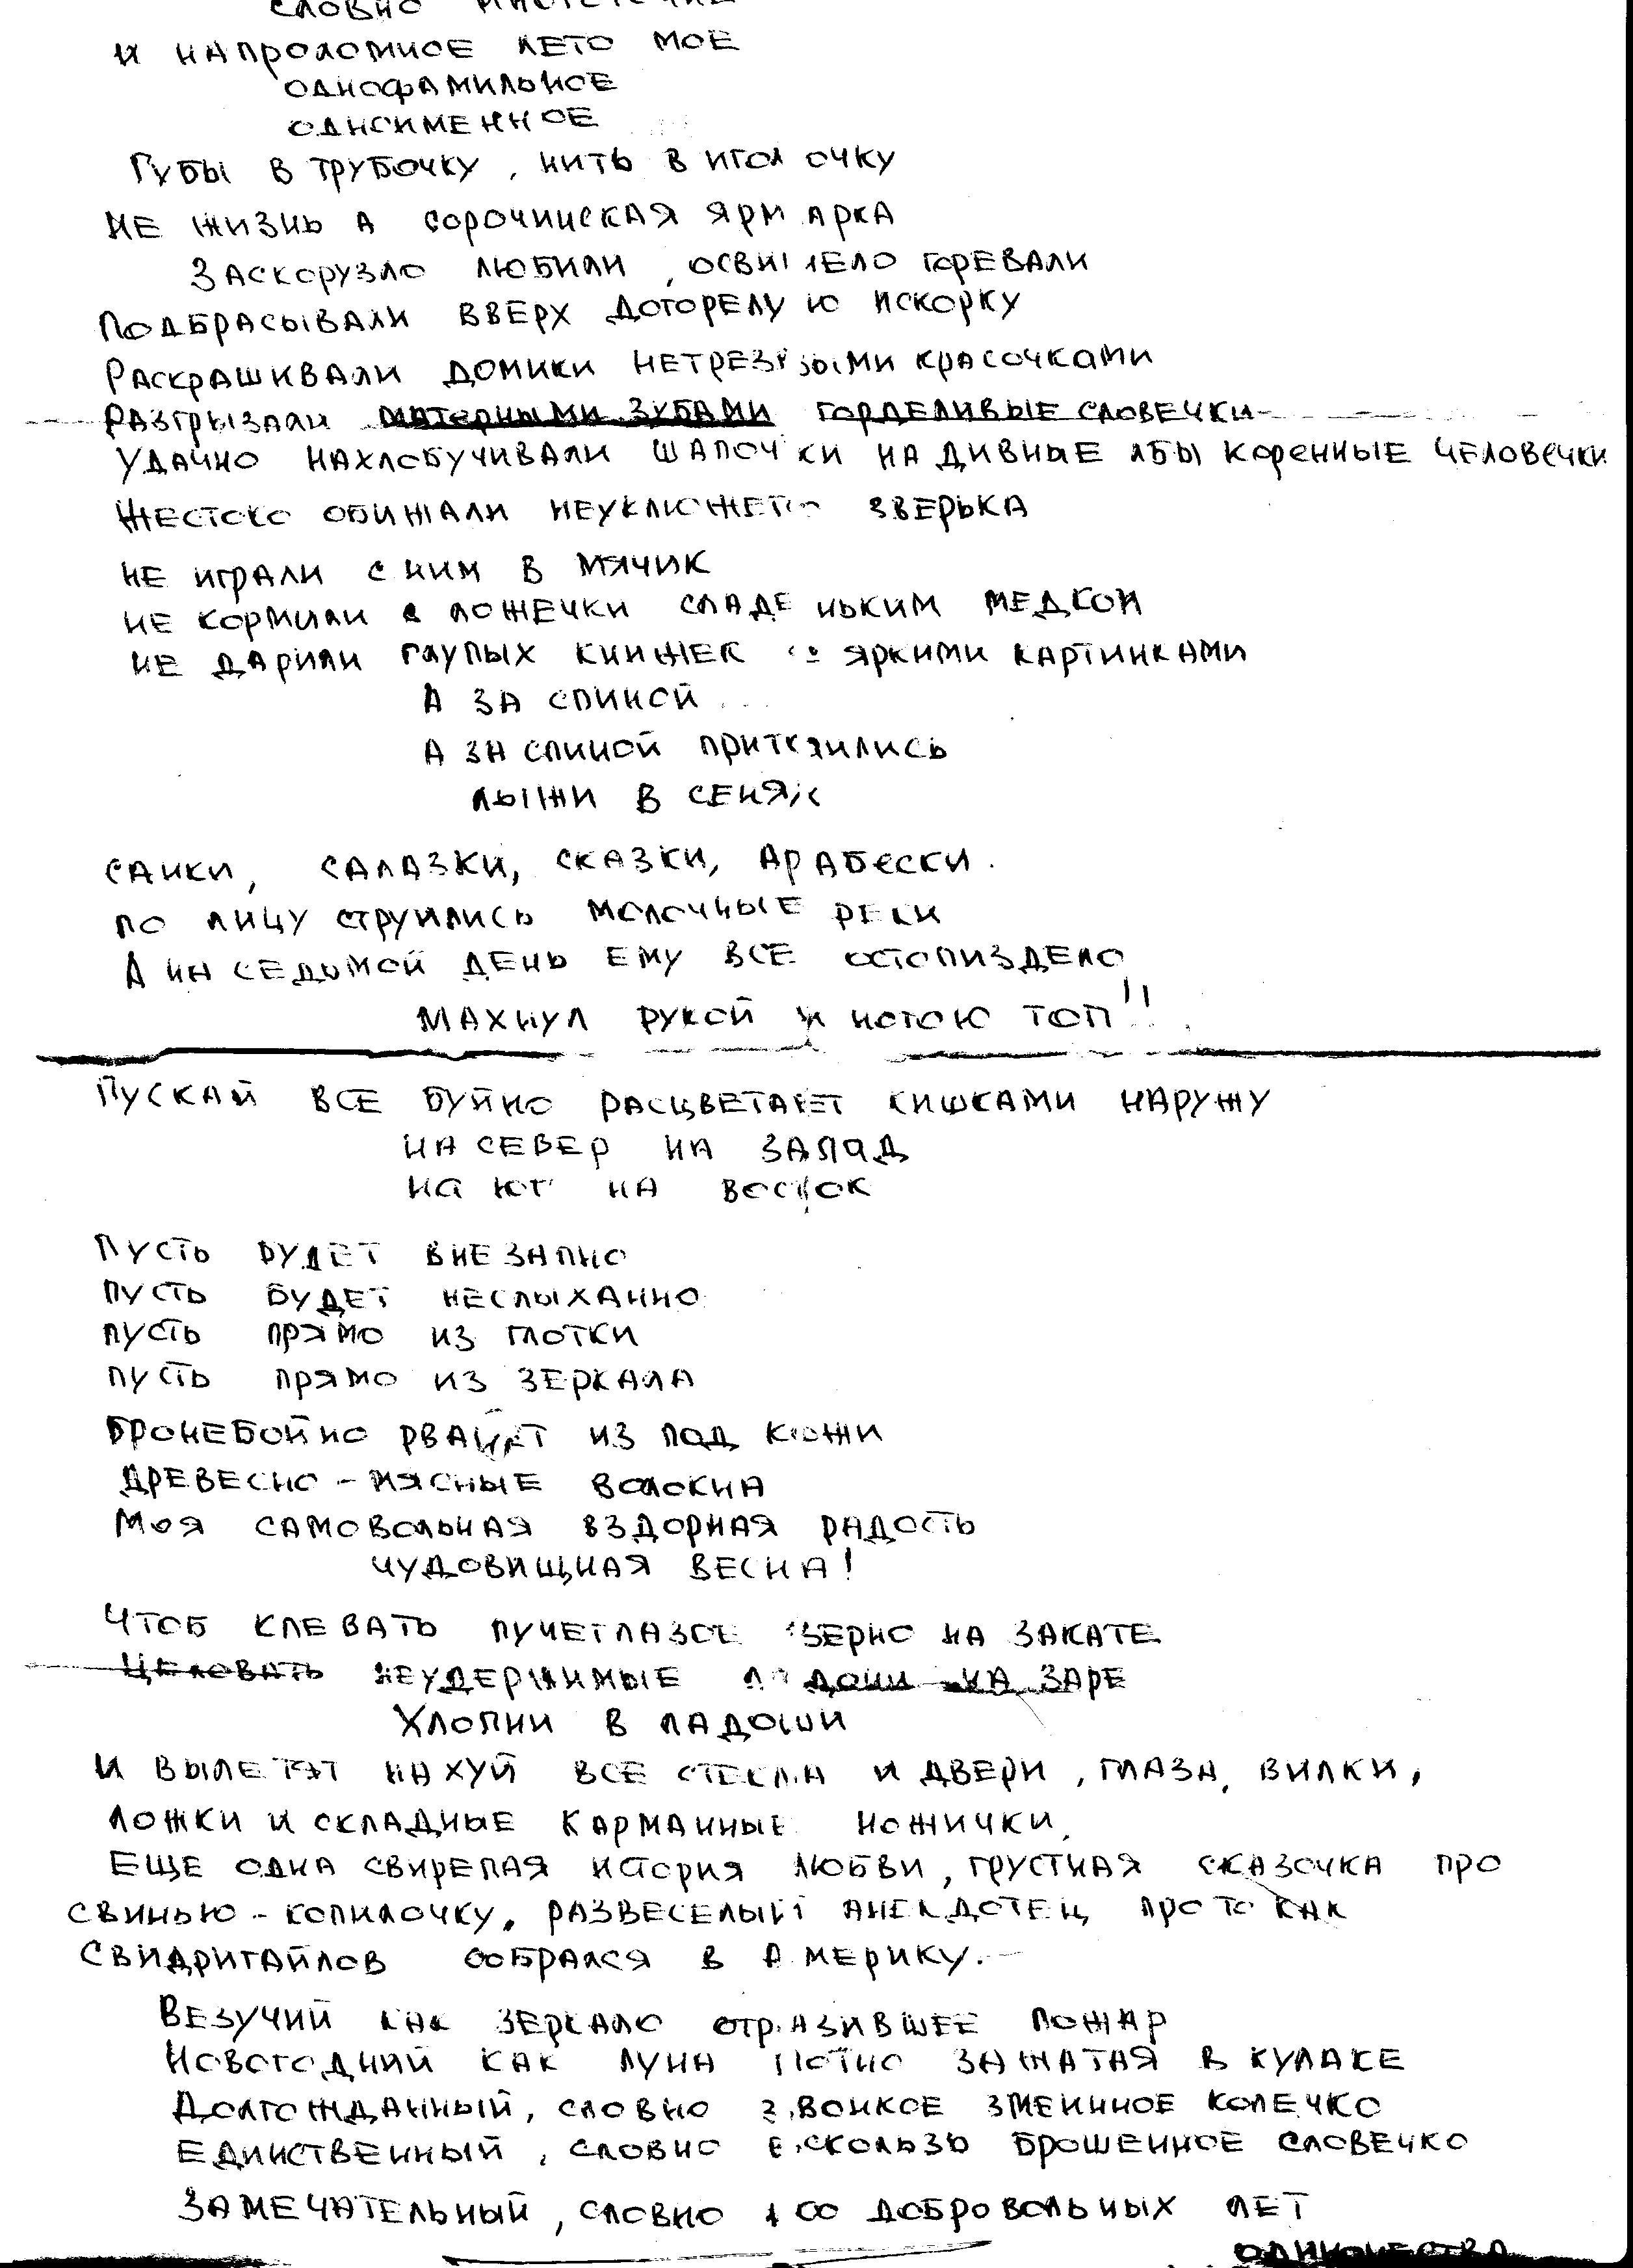 СЛОВНО МНОГОТОЧИЕ
И НАПРОЛОМНОЕ ЛЕТО МОЕ
ОДНОФАМИЛЬНОЕ
ОДНОИМЕННОЕ
ГУБЫ В ТРУБОЧКУ, НИТЬ В ИГОЛОЧКУ
НЕ ЖИЗНЬ А СОРОЧИНСКАЯ ЯРМАРКА
ЗАСКОРУЗЛО ЛЮБИЛИ, ОСВИНЕЛО ГОРЕВАЛИ
ПОДБРАСЫВАЛИ ВВЕРХ ДОГОРЕЛУЮ ИСКОРКУ
РАСКРАШИВАЛИ ДОМИКИ НЕТРЕЗВЫМИ КРАСОЧКАМИ
РАЗГРЫЗАЛИ МАТЕРНЫМИ ЗУБАМИ ГОРДЕЛИВЫЕ СЛОВЕЧКИ
УДАЧНО НАХЛОБУЧИВАЛИ ШАПОЧКИ НА ДИВНЫЕ ЛБЫ КОРЕННЫЕ ЧЕЛОВЕЧКИ
ЖЕСТОКО ОБИЖАЛИ НЕУКЛЮЖЕГО ЗВЕРЬКА
НЕ ИГРАЛИ С НИМ В МЯЧИК
НЕ КОРМИЛИ С ЛОЖЕЧКИ СЛАДЕНЬКИМ МЕДКОМ
НЕ ДАРИЛИ ГЛУПЫХ КНИЖЕК СО ЯРКИМИ КАРТИНКАМИ
А ЗА СПИНОЙ...
А ЗА СПИНОЙ ПРИТАИЛИСЬ
ЛЫЖИ В СЕНЯХ
САНКИ, САЛАЗКИ, СКАЗКИ, АРАБЕСКИ.
ПО ЛИЦУ СТРУИЛИСЬ МОЛОЧНЫЕ РЕКИ
А НА СЕДЬМОЙ ДЕНЬ ЕМУ ВСЕ ОСТОПИЗДЕЛО
МАХНУЛ РУКОЙ И НОГОЮ ТОП!!
ПУСКАЙ ВСЕ БУЙНО РАСЦВЕТАЕТ КИШКАМИ НАРУЖУ
НА СЕВЕР НА ЗАПАД
НА ЮГ НА ВОСТОК
ПУСТЬ БУДЕТ ВНЕЗАПНО
ПУСТЬ БУДЕТ НЕСЛЫХАННО
ПУСТЬ ПРЯМО ИЗ ГЛОТКИ
ПУСТЬ ПРЯМО ИЗ ЗЕРКАЛА
БРОНЕБОЙНО ИЗ ПОД КОЖИ
ДРЕВЕСНО-МЯСНЫЕ ВОЛОКНА
МОЯ САМОВОЛЬНАЯ ВЗДОРНАЯ РАДОСТЬ
ЧУДОВИЩНАЯ ВЕСНА!
ЧТОБ КЛЕВАТЬ ПУЧЕГЛАЗОЕ ЗЕРНО НА ЗАКАТЕ
ЦЕЛОВАТЬ НЕУДЕРЖИМЫЕ ЛАДОНИ НА ЗАРЕ
ХЛОПНИ В ЛАДОШИ
И ВЫЛЕТЯТ НАХУЙ ВСЕ СТЕКЛА И ДВЕРИ, ГЛАЗА, ВИЛКИ,
ЛОЖКИ И СКЛАДНЫЕ КАРМАННЫЕ НОЖИЧКИ.
ЕЩЕ ОДНА СВИРЕПАЯ ИСТОРИЯ ЛЮБВИ, ГРУСТНАЯ СКАЗОЧКА ПРО
СВИНЬЮ-КОПИЛОЧКУ, РАЗВЕСЕЛЫЙ АНЕКДОТЕЦ ПРО ТО КАК
СВИДРИГАЙЛОВ СОБРАЛСЯ В АМЕРИКУ.
ВЕЗУЧИЙ КАК ЗЕРКАЛО ОТРАЗИВШЕЕ ПОЖАР
НОВОГОДНИЙ КАК ЛУНА ПОТНО ЗАЖАТАЯ В КУЛАКЕ
ДОЛГОЖДАННЫЙ, СЛОВНО ЗВОНКОЕ ЗМЕИННОЕ КОЛЕЧКО
ЕДИНСТВЕННЫЙ, СЛОВНО ВСКОЛЬЗЬ БРОШЕННОЕ СЛОВЕЧКО
ЗАМЕЧАТЕЛЬНЫЙ, СЛОВНО 100 ДОБРОВОЛЬНЫХ ЛЕТ
ОДИНОЧЕСТВА